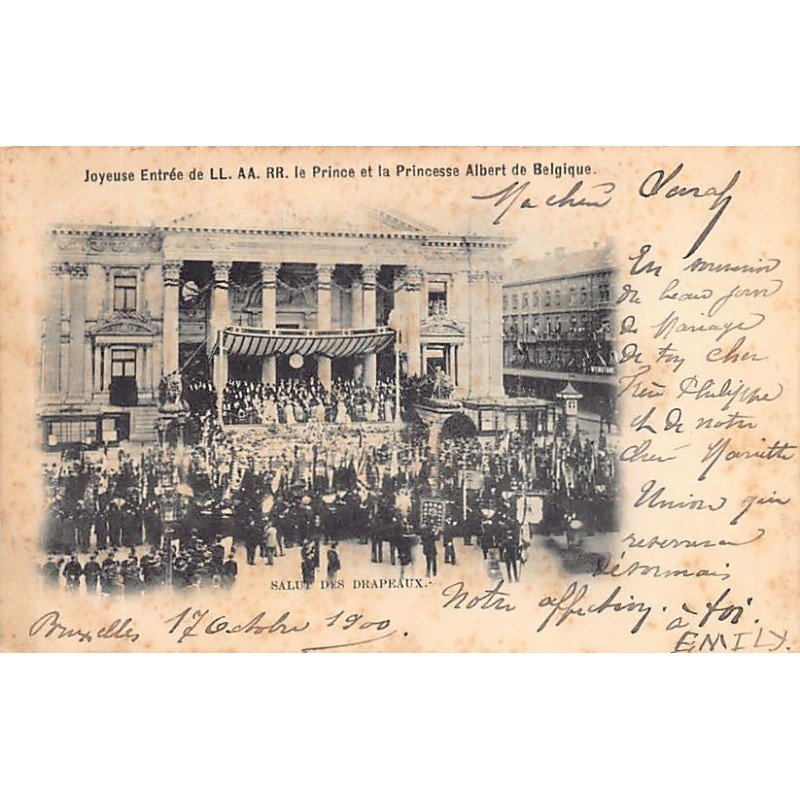 Joyeuse Entrée de LL. AA. RR. le Prince et la Princesse Albert de Belgique.
Ma chère Sarah
En souvenir
du beau jour
du Mariage
de ton cher
Frère Philippe
et de notre
chère Mariette
Union qui
resserrera
désormais
Notre affection.
à toi.
EMILY.
SALUT DES DRAPEAUX.
Bruxelles 17 Octobre 1900.